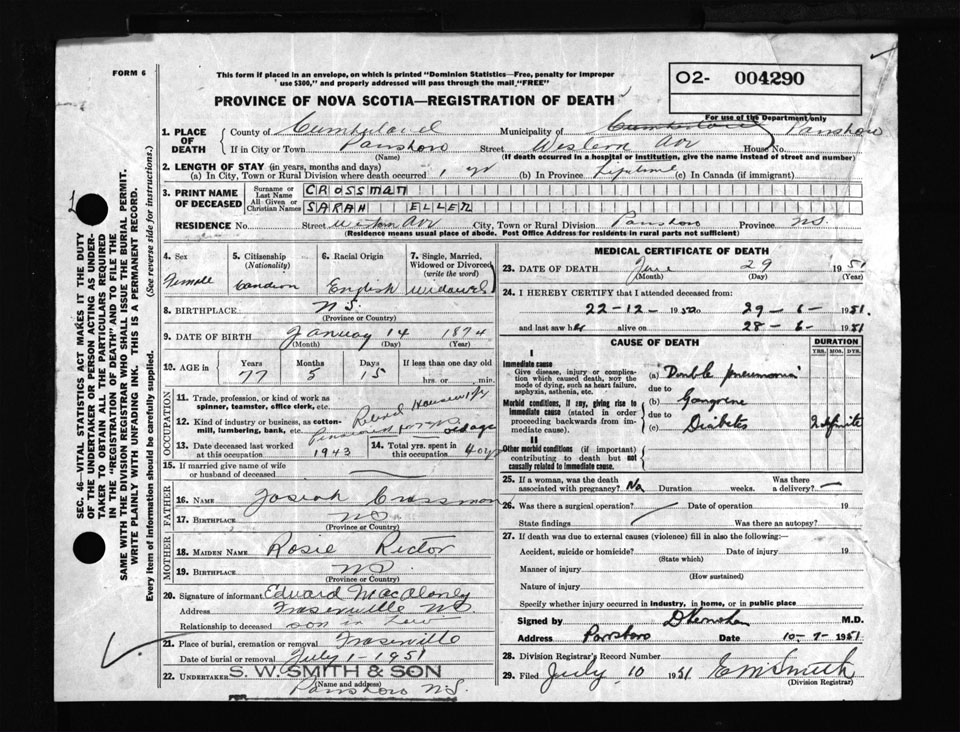 FORM 6
This form if placed in an envelope, on which is printed "Dominion Statistics—Free, penalty for improper
use $300," and properly addressed will pass through the mail "FREE"
O2- 004290
For use of the Department only
PROVINCE OF NOVA SCOTIA—REGISTRATION OF DEATH
1. PLACE OF DEATH County of Cumberland Municipality of Cumberland Parrsboro
If in City or Town Parrsboro (Name) Street Western Ave House No.
(If death occurred in a hospital or institution, give the name instead of street and number)
2. LENGTH OF STAY (in years, months and days)
(a) In City, Town or Rural Division where death occurred 1 yr (b) In Province Lifetime (c) In Canada (if immigrant)
3. PRINT NAME OF DECEASED Surname or Last Name CROSSMAN
All Given or Christian Names SARAH ELLEN
RESIDENCE No. Street Western Ave City, Town or Rural Division Parrsboro Province NS.
(Residence means usual place of abode. Post Office Address for residents in rural parts not sufficient)
4. Sex Female
5. Citizenship (Nationality)
6. Racial Origin English
7. Single, Married, Widowed or Divorced (write the word)
8. BIRTHPLACE N S.
(Province or Country)
9. DATE OF BIRTH January 14 1874
(Month) (Day) (Year)
10. AGE in Years 77 Months 5 Days 15 If less than one day old hrs. or min.
OCCUPATION
11. Trade, profession, or kind of work as spinner, teamster, office clerk, etc. Housewife
12. Kind of industry or business, as cotton-mill, lumbering, bank, etc. old age
13. Date deceased last worked at this occupation 1943
14. Total yrs. spent in this occupation 40 yrs
15. If married give name of wife or husband of deceased
FATHER
16. NAME Josiah Crossman
17. BIRTHPLACE NS
(Province or Country)
MOTHER
18. MAIDEN NAME Rosie Rector
19. BIRTHPLACE NS
(Province or Country)
20. Signature of informant Edward MacAloney
Address Fraserville NS.
Relationship to deceased son in Law
21. Place of burial, cremation or removal Fraserville
Date of burial or removal July 1 - 1951
22. UNDERTAKER S. W. SMITH & SON
(Name and address)
Parrsboro N.S.
MEDICAL CERTIFICATE OF DEATH
23. DATE OF DEATH June 29 1951
(Month) (Day) (Year)
24. I HEREBY CERTIFY that I attended deceased from:
22-12- 1950 to 29-6- 1951
and last saw her alive on 28-6- 1951
CAUSE OF DEATH DURATION
YRS. MOS. DYS.
I
Immediate cause
Give disease, injury or complication which caused death, NOT the mode of dying, such as heart failure, asphyxia, asthenia, etc.
(a) Double pneumonia
due to
Morbid conditions, if any, giving rise to immediate cause (stated in order proceeding backwards from immediate cause).
(b) Gangrene
due to
(c) Diabetes
II
Other morbid conditions (if important) contributing to death but not causally related to immediate cause.
25. If a woman, was the death associated with pregnancy? No Duration weeks. Was there a delivery? —
26. Was there a surgical operation? Date of operation 19
State findings Was there an autopsy?
27. If death was due to external causes (violence) fill in also the following:—
Accident, suicide or homicide? Date of injury 19
(State which)
Manner of injury
(How sustained)
Nature of injury
Specify whether injury occurred in industry, in home, or in public place
Signed by M.D.
Address Parrsboro Date 10-7-1951
28. Division Registrar's Record Number
29. Filed July 10 1951 E M Smith
(Division Registrar)
SEC. 46—VITAL STATISTICS ACT MAKES IT THE DUTY
OF THE UNDERTAKER OR PERSON ACTING AS UNDER-
TAKER TO OBTAIN ALL THE PARTICULARS REQUIRED
IN THE "REGISTRATION OF DEATH" AND TO FILE THE
SAME WITH THE DIVISION REGISTRAR WHO SHALL ISSUE THE BURIAL PERMIT.
WRITE PLAINLY WITH UNFADING INK. THIS IS A PERMANENT RECORD.
Every item of information should be carefully supplied. (See reverse side for instructions.)